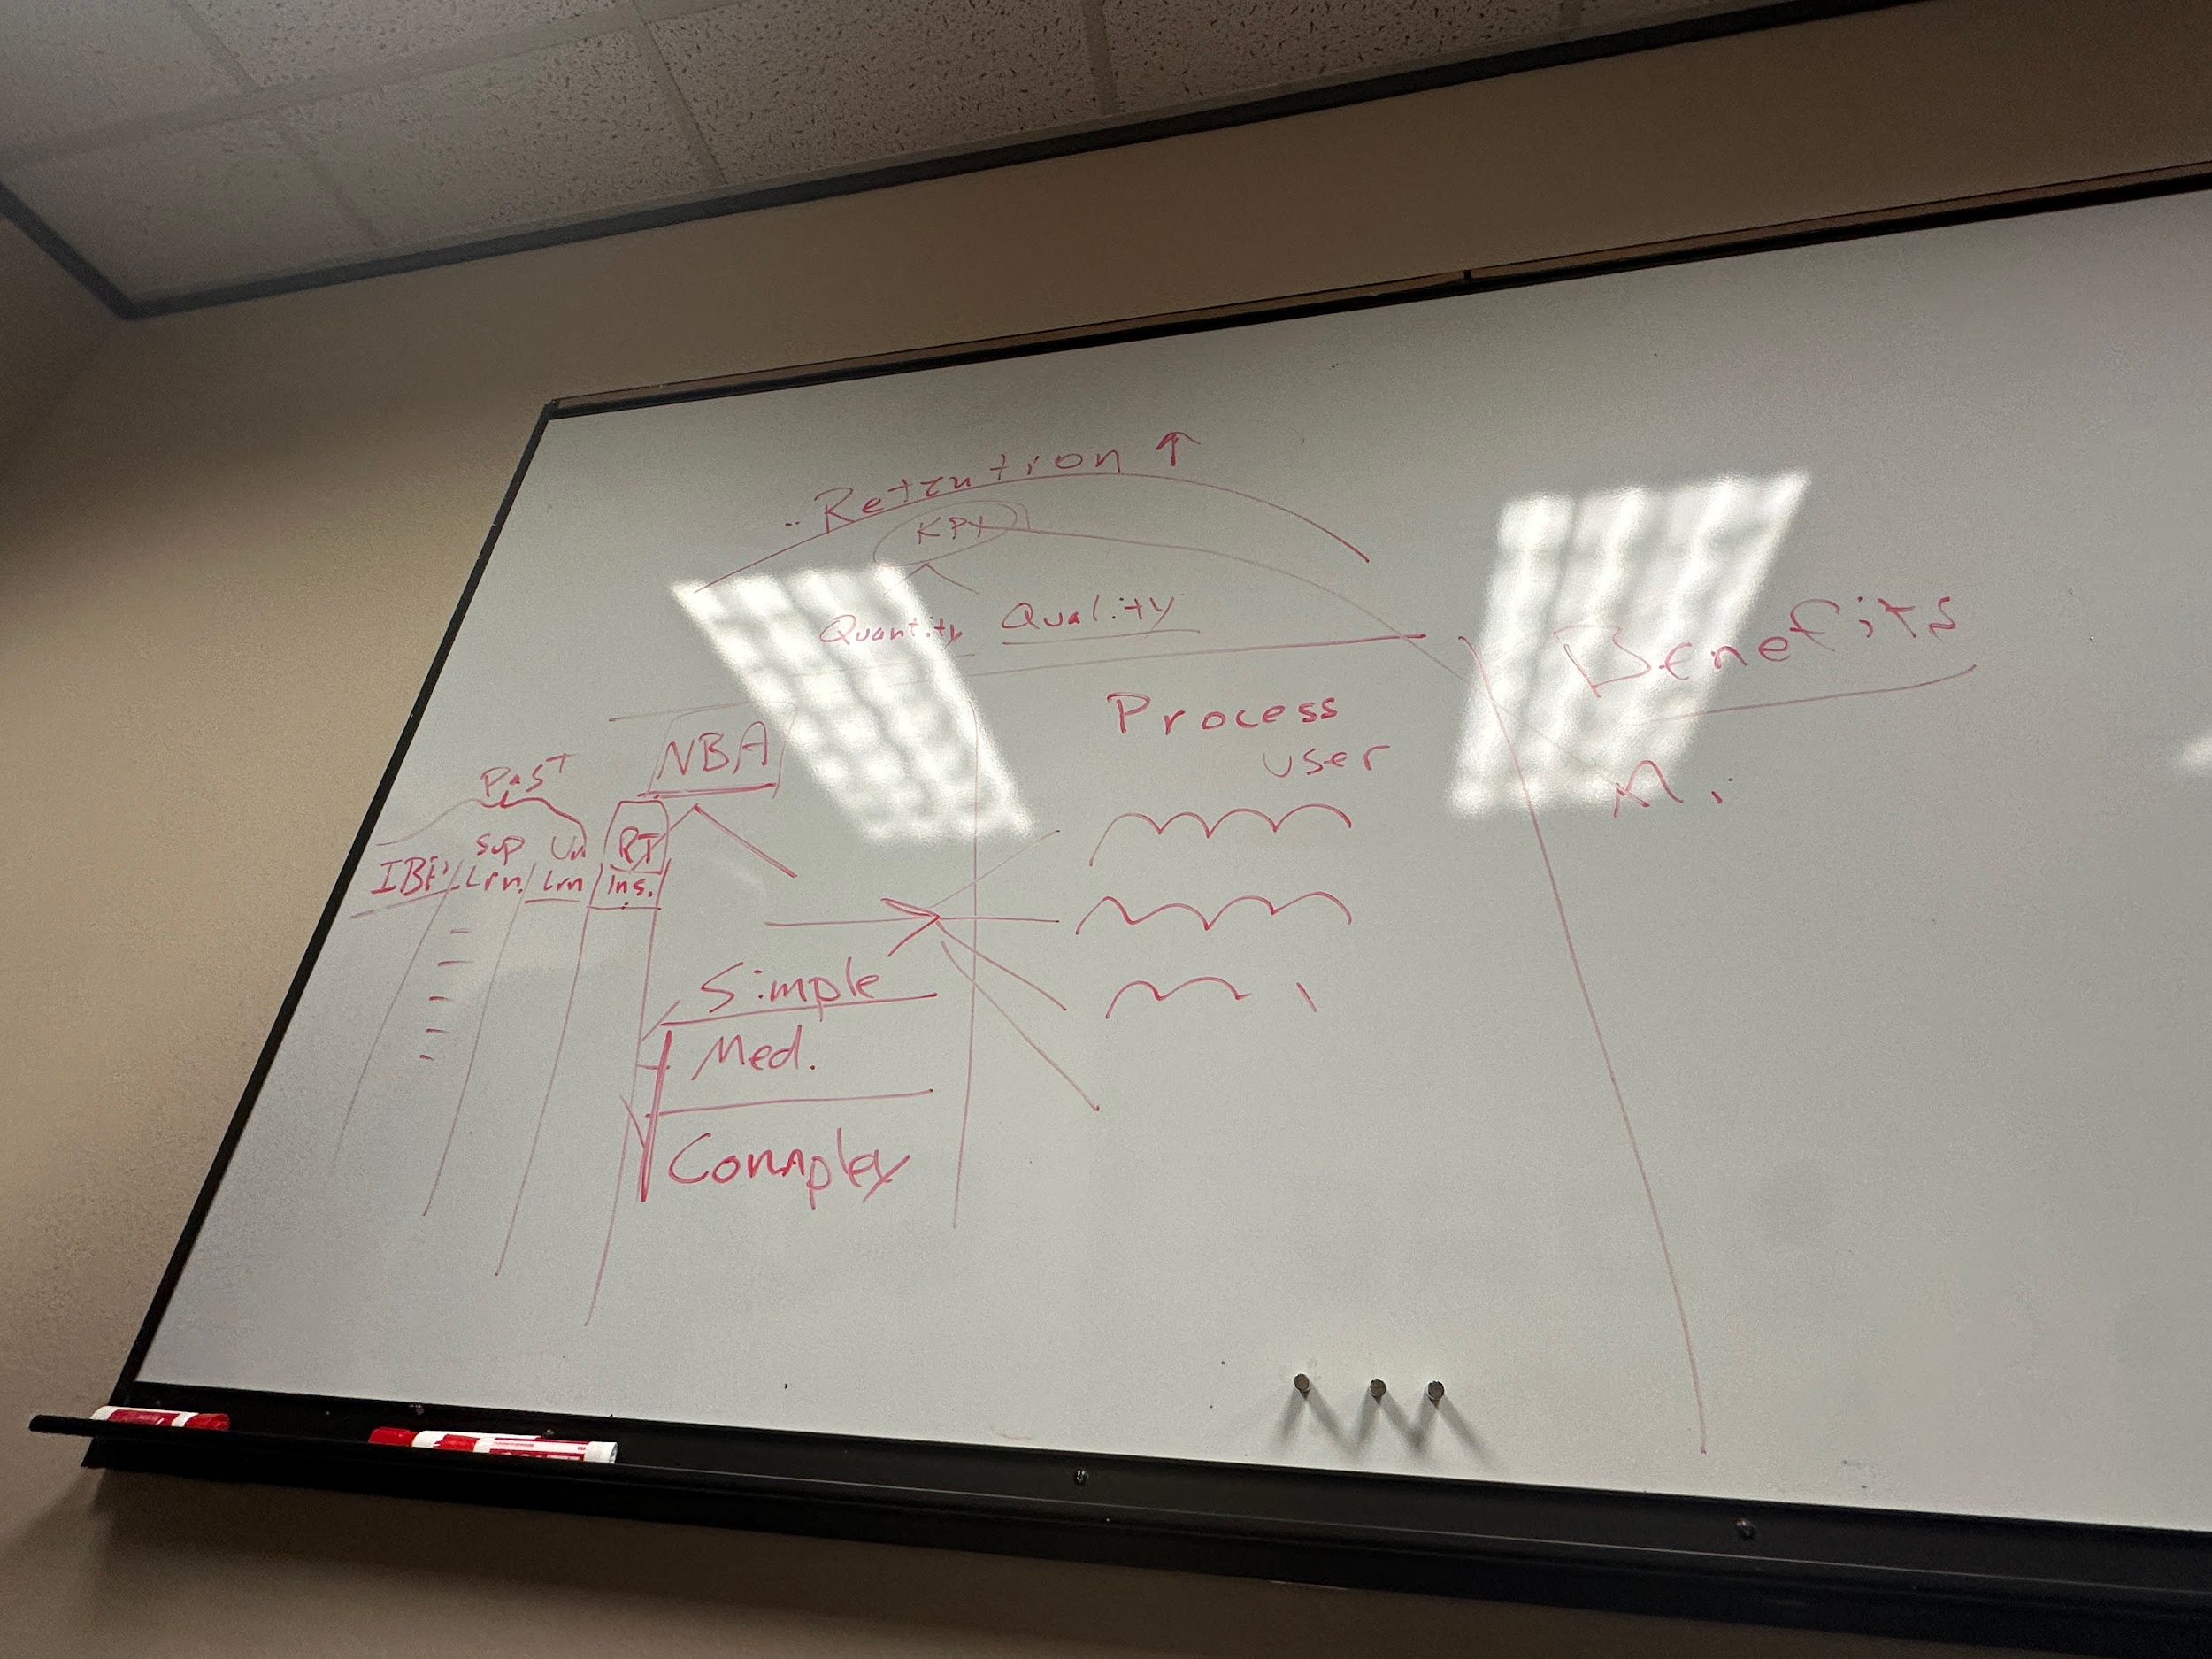 Retention ↑
KPI
Quantity Quality
Benefits
Process
user
NBA
Past
Sup Un RT
Lrn. Lrn Ins.
Simple
Med.
Complex